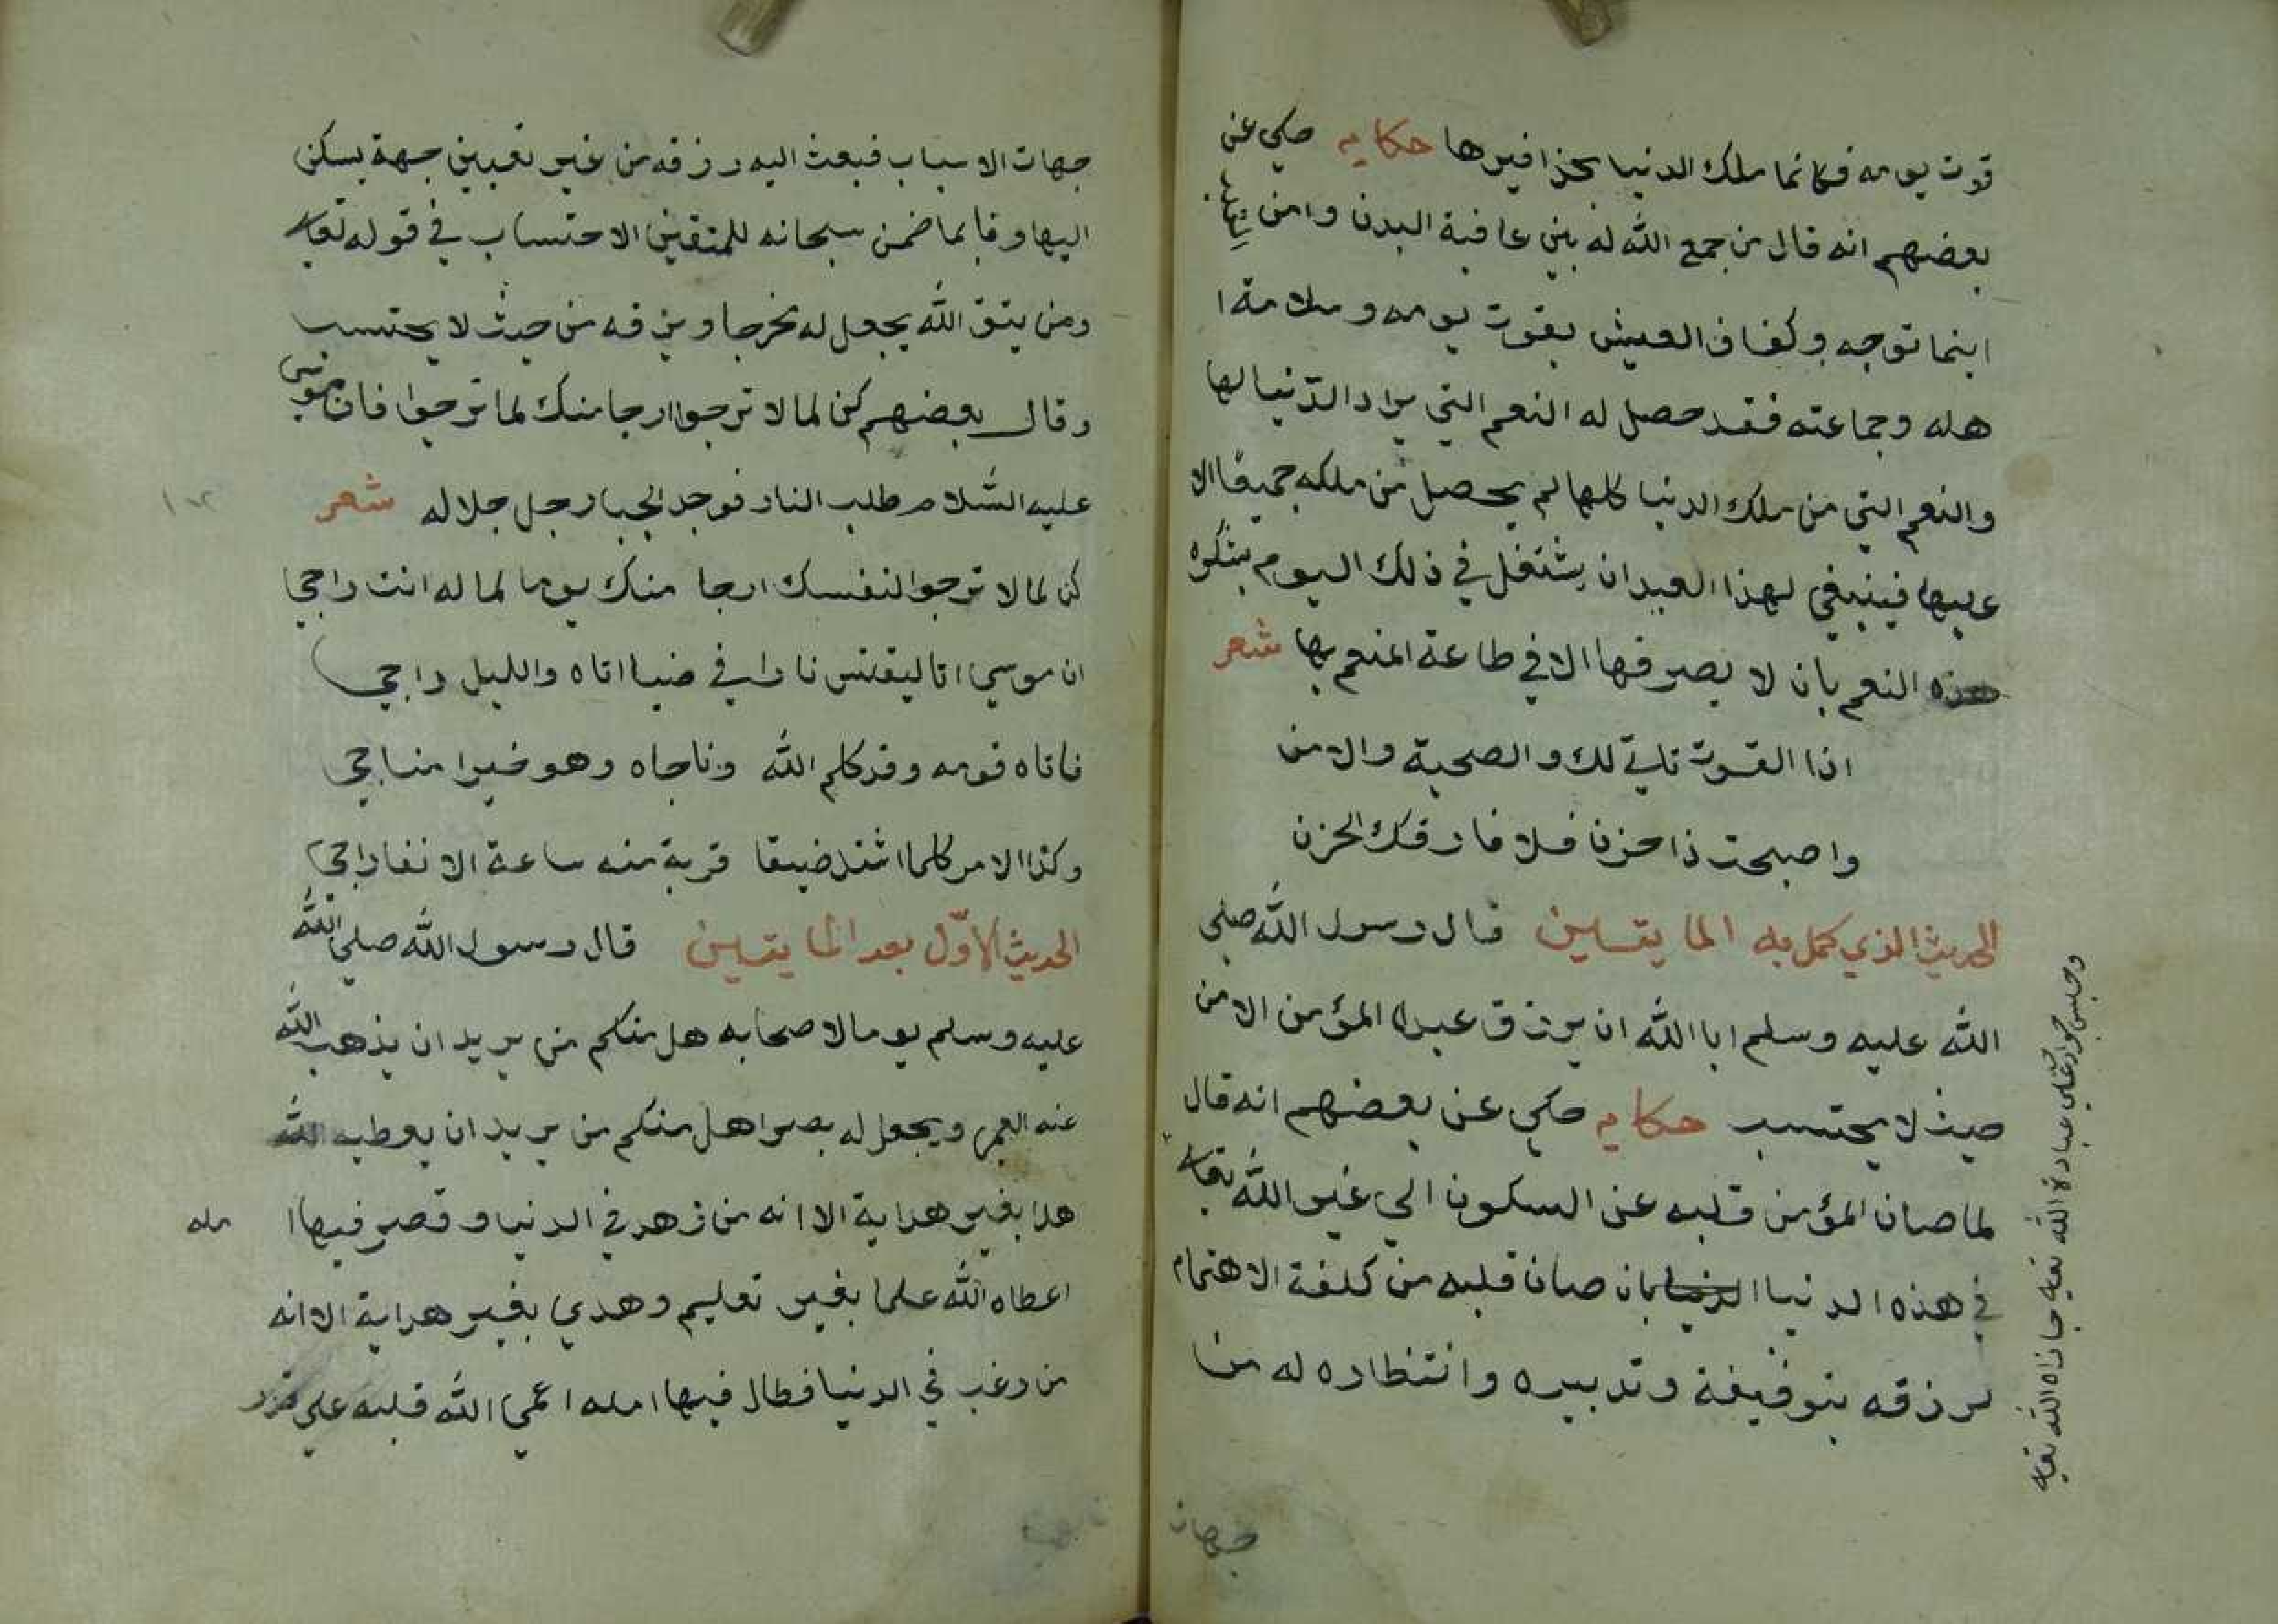 قوت يومه فكانما ملك الدنيا بحذافيرها حكايه حكي عن
بعضهم انه قال من جمع الله له بين عافية البدن وامن
اينما توجه وكفاف العيش بقوت يومه وسلامة ا
هله وجماعته فقد حصل له النعم التي يراد الدنيا لها
والنعم التي من ملك الدنيا كلها لم يحصل من ملكه جميعا الا
عليها فينبغي لهذا العبد ان يشتغل في ذلك اليوم بشكره
هذه النعم بان لا يصرفها الا في طاعة المنعم بها شعر
اذا القوت تاتي لك والصحية والامن
واصبحت ذا حزن فلا فارقك الحزن
الحديث الذي كمل به المايتين قال رسول الله صلى
الله عليه وسلم ابا الله ان يرزق عبده المؤمن الا من
حيث لا يحتسب حكايه حكي عن بعضهم انه قال
لما صان المؤمن قلبه عن السكون الي غير الله تعالى
في هذه الدنيا بان صان قلبه من كلفة الاهتمام
لرزقه بتوفيقة وتدبيره وانتظاره له من
جهات
وحبس جوارحه على عبادة الله تعالى جازاه الله تعالى
جهات الاسباب فبعث اليه رزقه من غير تعيين جهة يسكن
اليها وفا بما ضمن سبحانه للمتقين الاحتساب في قوله تعالى
ومن يتق الله يجعل له مخرجا ويرزقه من حيث لا يحتسب
وقال بعضهم كن لما لا ترجوا ارجا منك لما ترجوا فان موسى
عليه السلام طلب النار فوجد الجبار جل جلاله شعر
كن لما لا ترجوا لنفسك ارجا منك يوما لما له انت راجي
ان موسي اتا ليقتس نارا في ضيا اتاه والليل داجي
فاتاه قومه وقد كلم الله وناجاه وهو خيرا مناجي
وكذا الامر كلما اشتد ضيقا قربة منه ساعة الانفراجي
الحديث الاول بعد المايتين قال رسول الله صلى الله
عليه وسلم يوما لاصحابه هل منكم من يريد ان يذهب الله
عنه العمي ويجعل له بصيرا هل منكم من يريد ان يعطيه الله
هدا بغير هداية الا انه من زهد في الدنيا وقصر فيها ا مله
اعطاه الله علما بغير تعليم وهدي بغير هداية الا انه
من رغب في الدنيا فطال فيها امله اعمي الله قلبه علي قدر